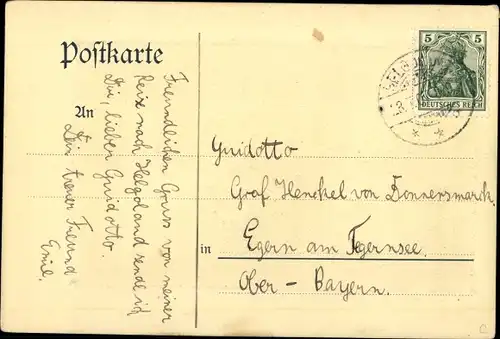 Postkarte
An
Freundlichen Gruss von meiner
Reise nach Helgoland sende ich
Dir, lieber Guidotto.
Dein treuer Freund
Emil.
5 5
DEUTSCHES REICH
Guidotto
Graf Henckel von Donnersmarck
in
Egern am Tegernsee.
Ober-Bayern.